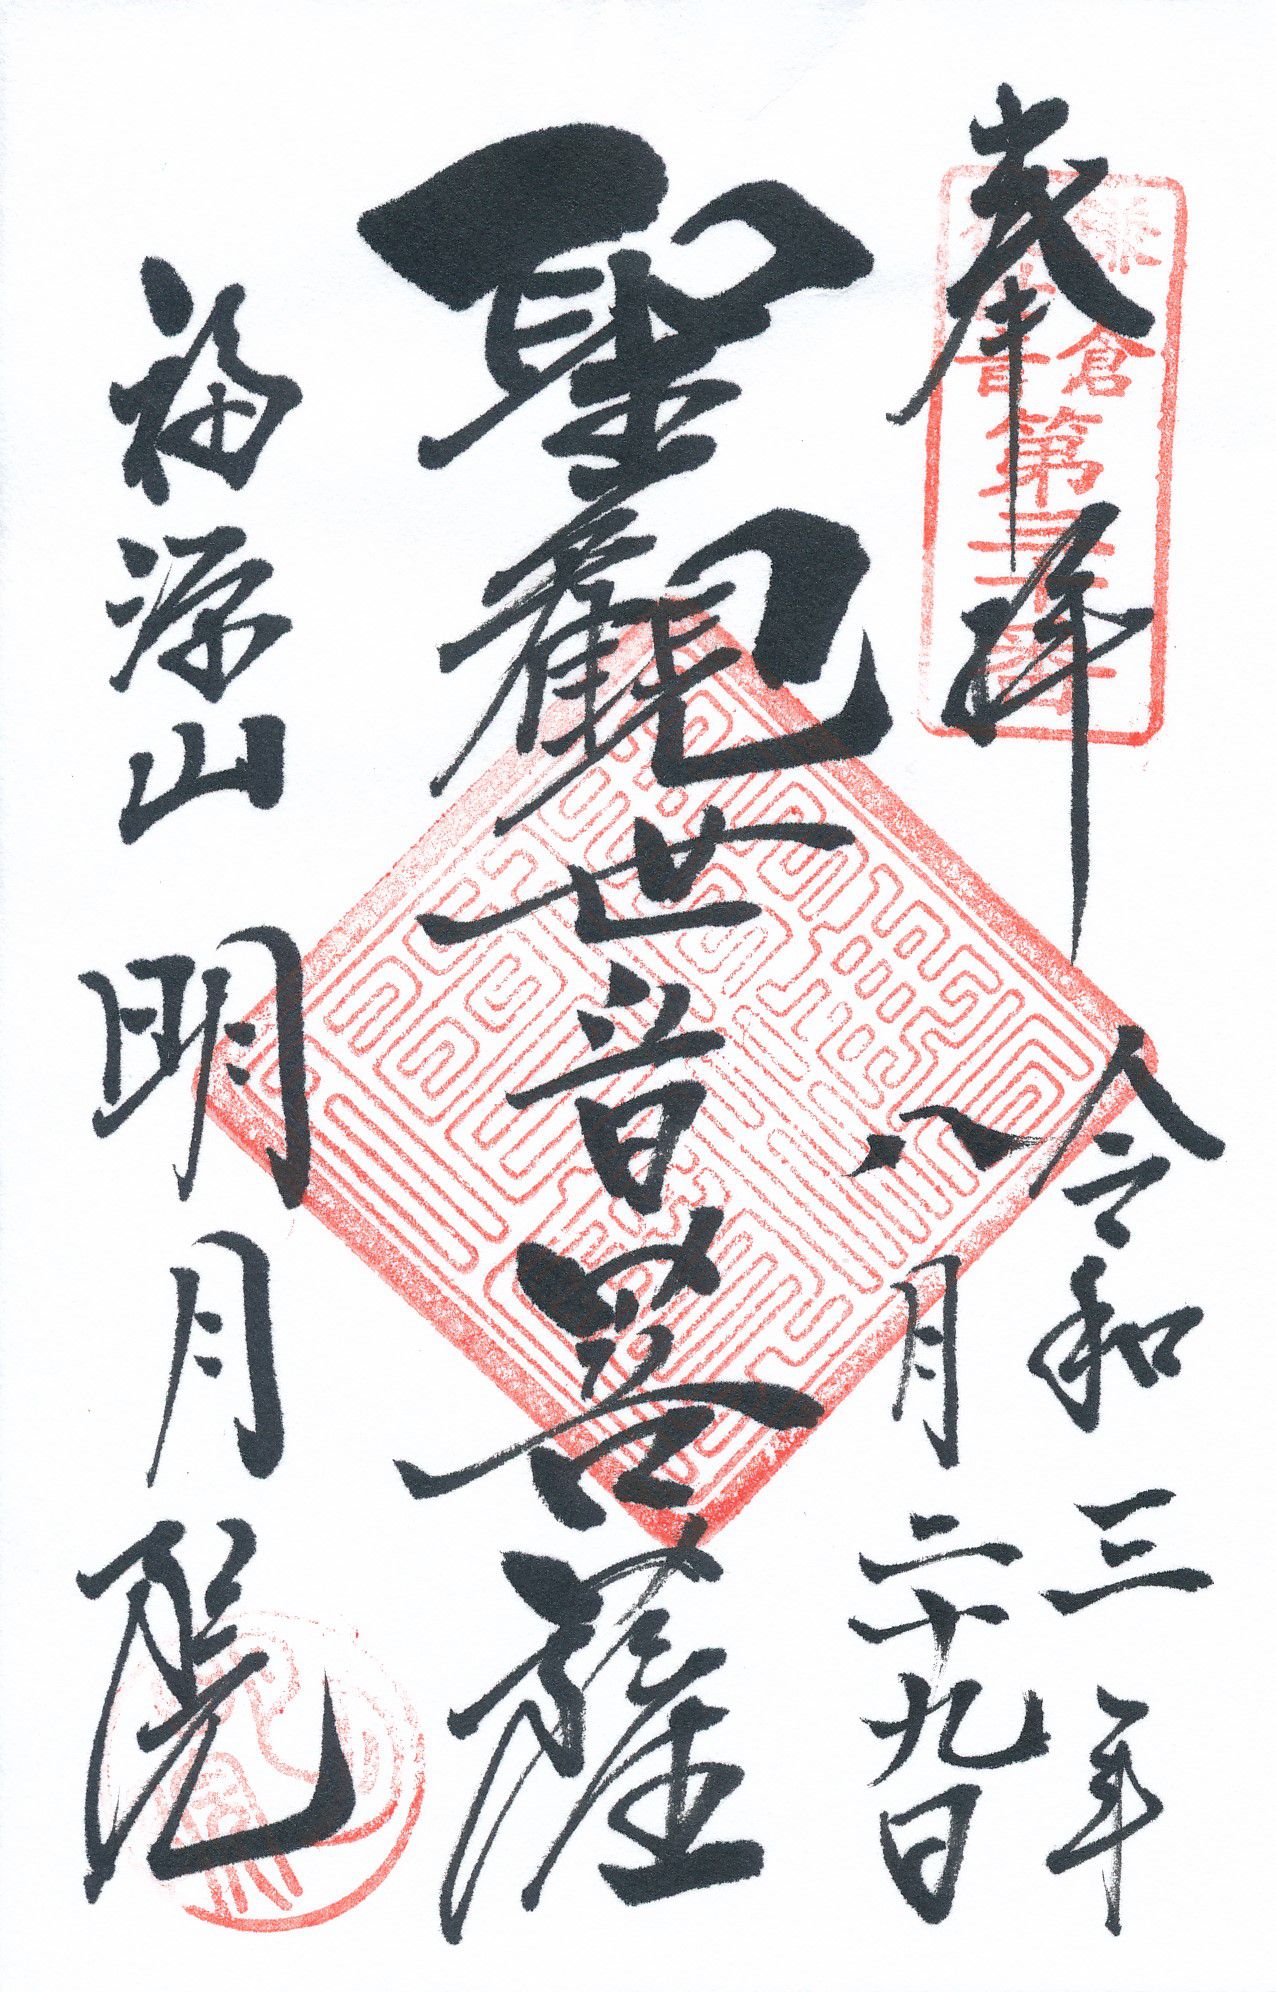 奉拝
鎌倉
観音
第三十番
令和三年
八月二十九日
聖觀世音菩薩
福源山
明月院